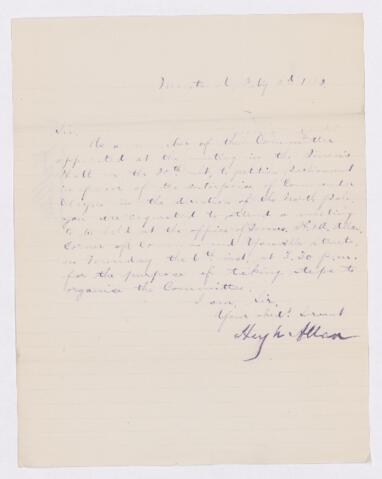 Montreal, Feby 2d 188
Sir,
As a member of the Committee
appointed at the meeting in the Queen's
Hall on the 30th ult. to petition Parliament
in favor of the enterprise of Commander
Cheyne in the direction of the North Pole,
you are requested to attend a meeting
to be held at the office of Messrs. H. & A. Allan,
Corner of Common and Youville streets,
on Monday the 6th inst. at 3.30 p.m.
for the purpose of taking steps to
organise the Committee.
I am, Sir,
Your Obdt. Servt
Hugh Allan